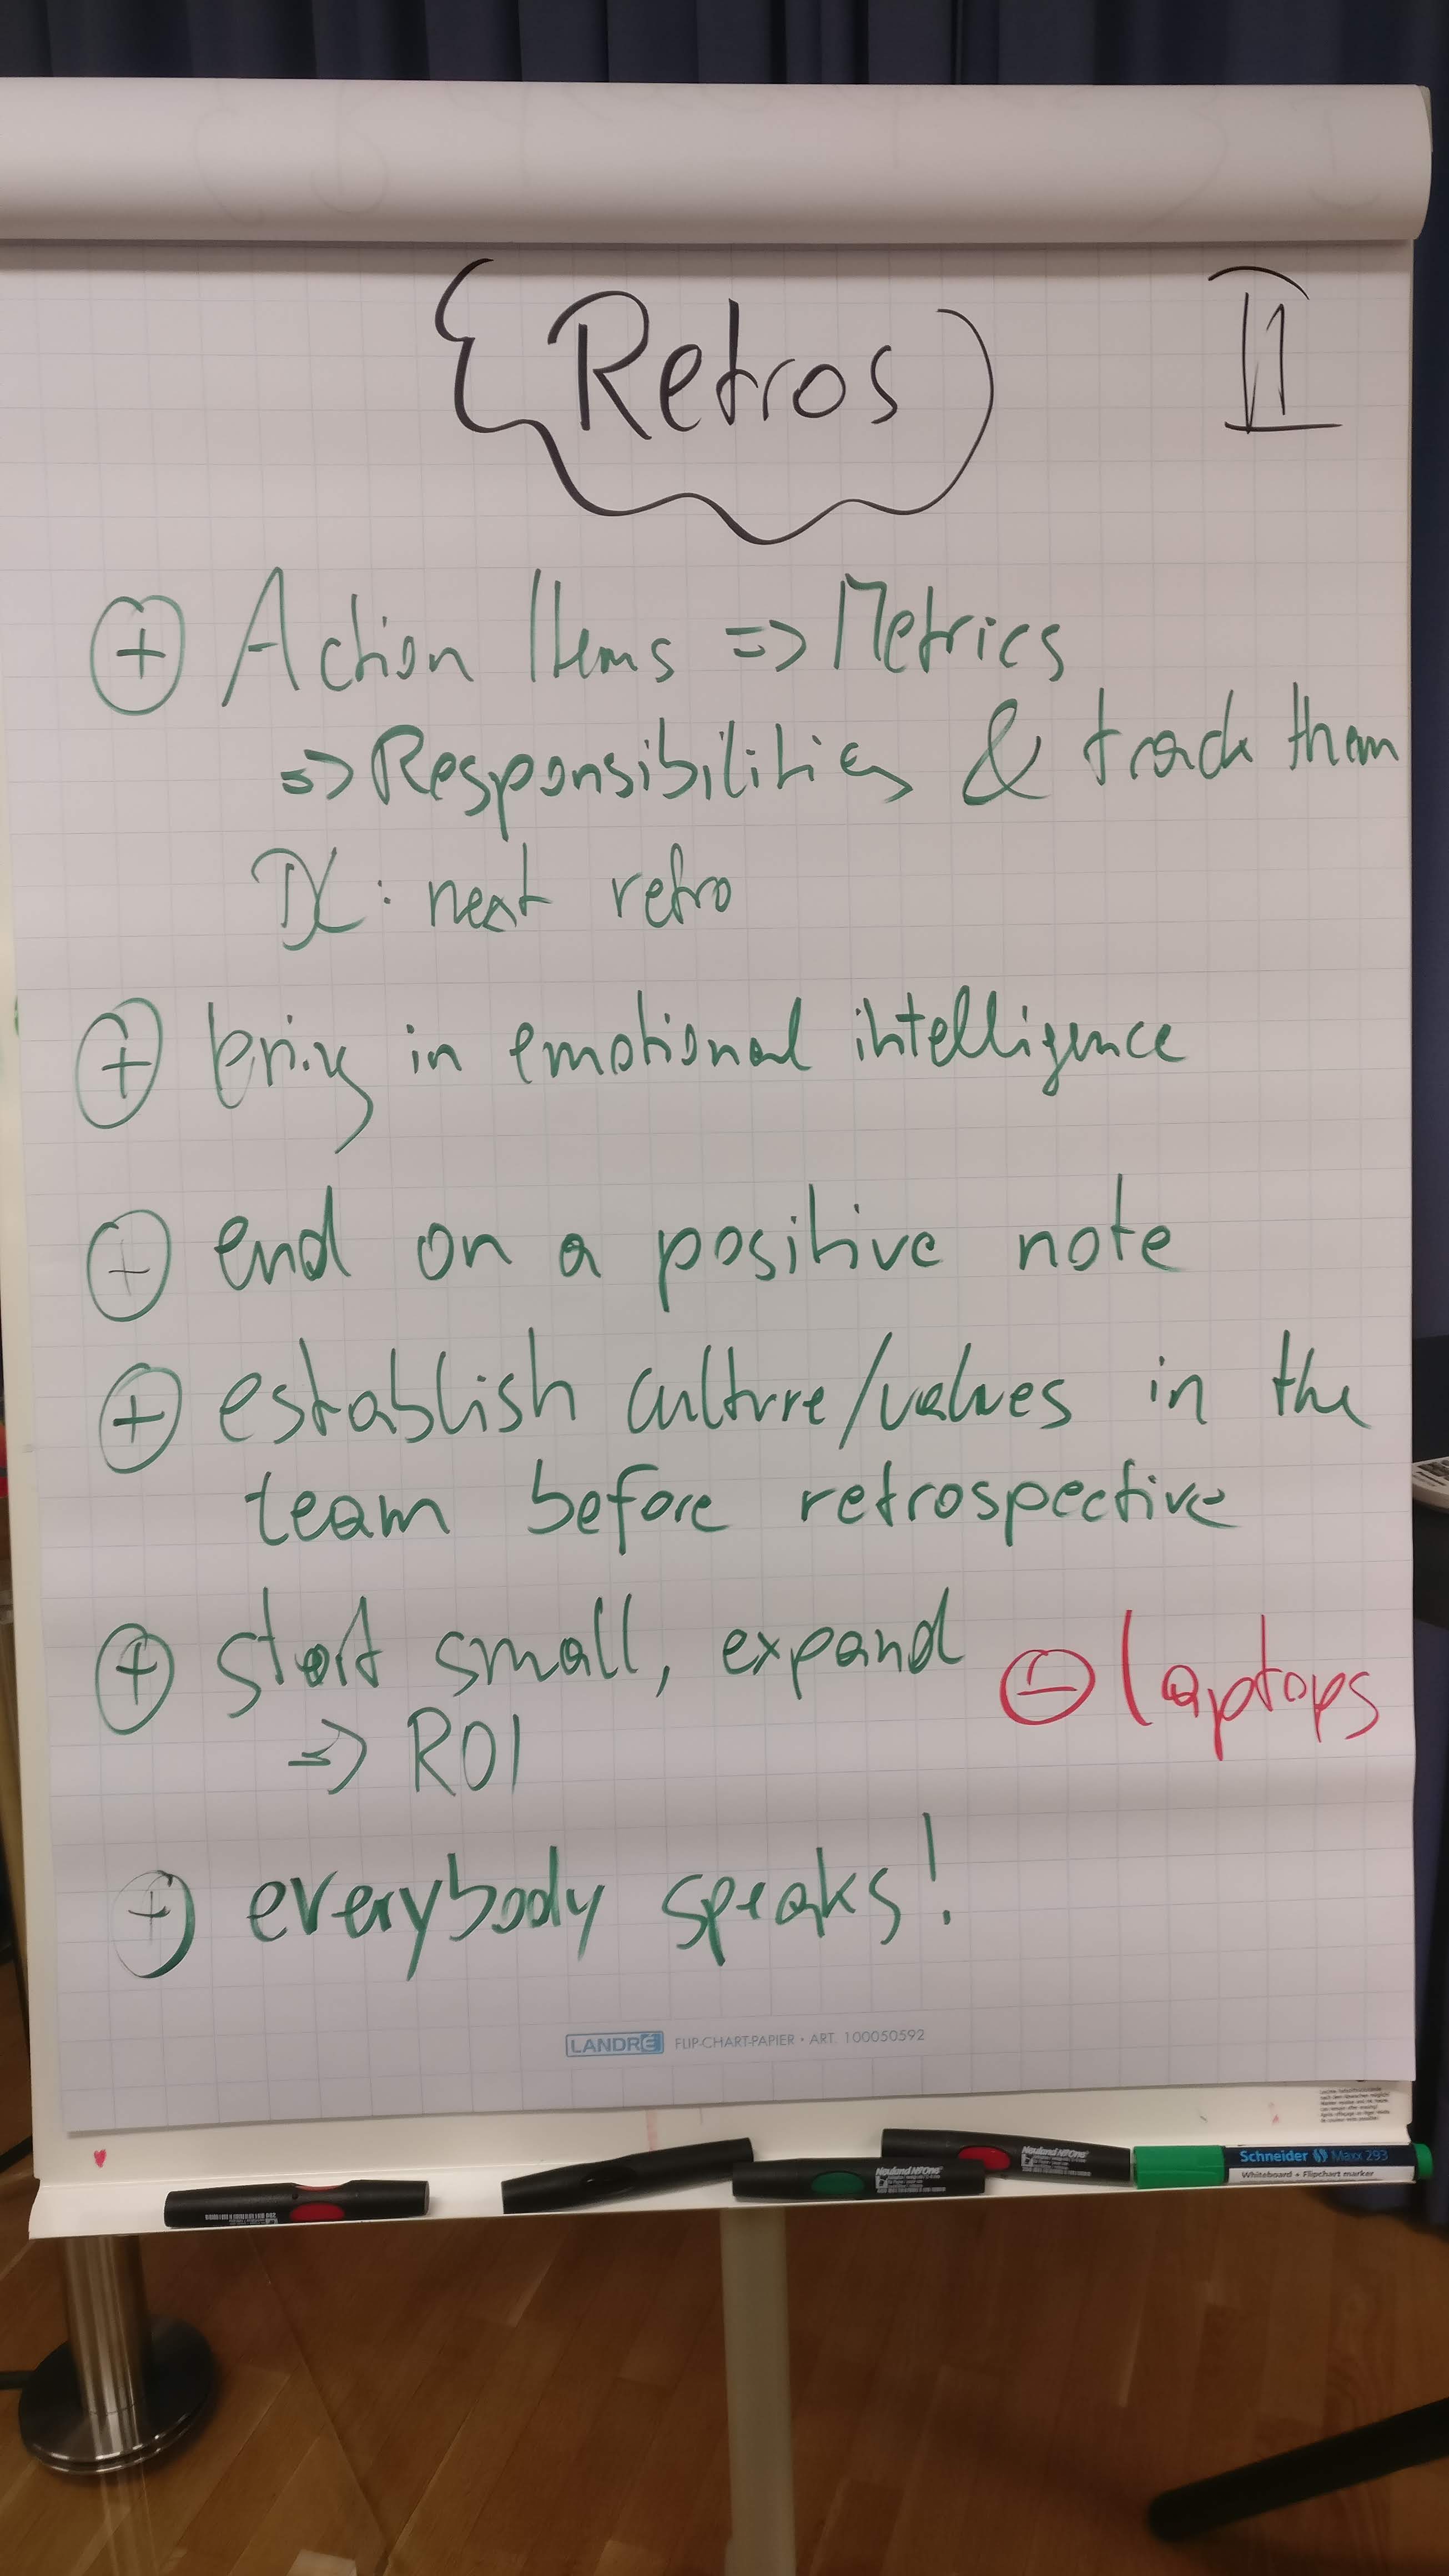 Retros II
⊕ Action Items => Metrics
=> Responsibilities & track them
: next retro
⊕ bring in emotional intelligence
⊕ end on a positive note
⊕ establish culture/values in the
team before retrospective
⊕ start small, expand
⊖ laptops
=> ROI
⊕ everybody speaks!
LANDRÉ FLIP-CHART-PAPIER • ART. 100050592
Neuland No.One
Neuland No.One
Schneider Maxx 293
Whiteboard + Flipchart marker